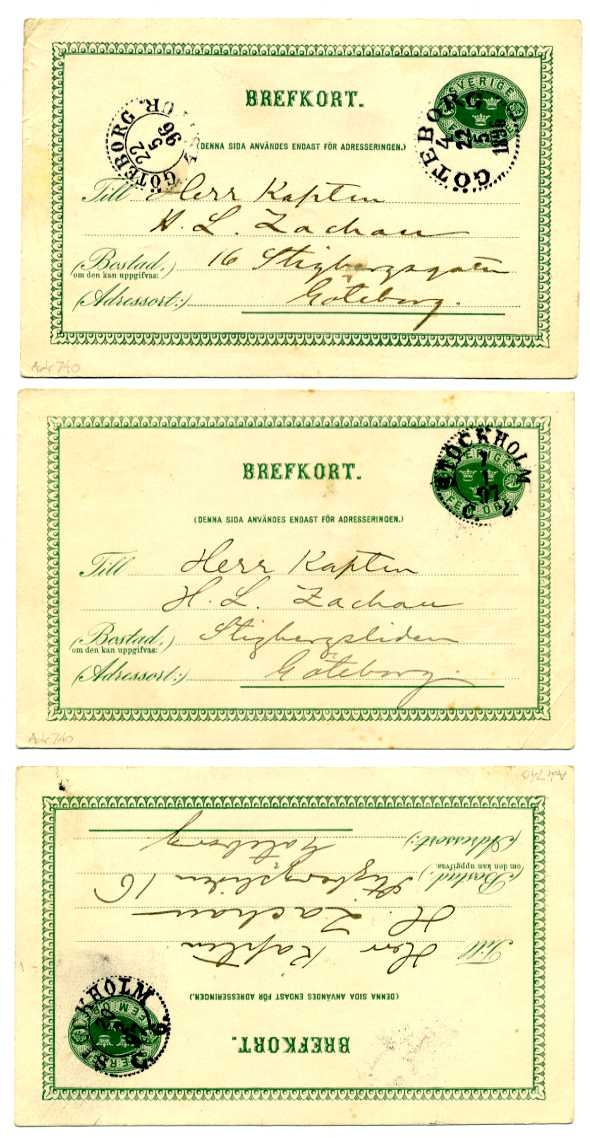 BREFKORT.
SVERIGE
GÖTEBORG
22
5
96
GÖTEBORG
4
22
5
1896
(DENNA SIDA ANVÄNDES ENDAST FÖR ADRESSERINGEN.)
Till Herr Kapten
H. L. Zachau
(Bostad,) 16 Stigbergsgatan
om den kan uppgifvas:
(Adressort:) Göteborg.
Ark 740
BREFKORT.
STOCKHOLM
1
1
97
SVERIGE
(DENNA SIDA ANVÄNDES ENDAST FÖR ADRESSERINGEN.)
Till Herr Kapten
H. L. Zachau
(Bostad,) Stigbergsliden
om den kan uppgifvas:
(Adressort:) Göteborg.
Ark 740
BREFKORT.
KHOLM
FEM
(DENNA SIDA ANVÄNDES ENDAST FÖR ADRESSERINGEN.)
Till Herr Kapten
H. Zachau
(Bostad,) Stigbergsliden 16
om den kan uppgifvas:
(Adressort:) Göteborg
Ark 740